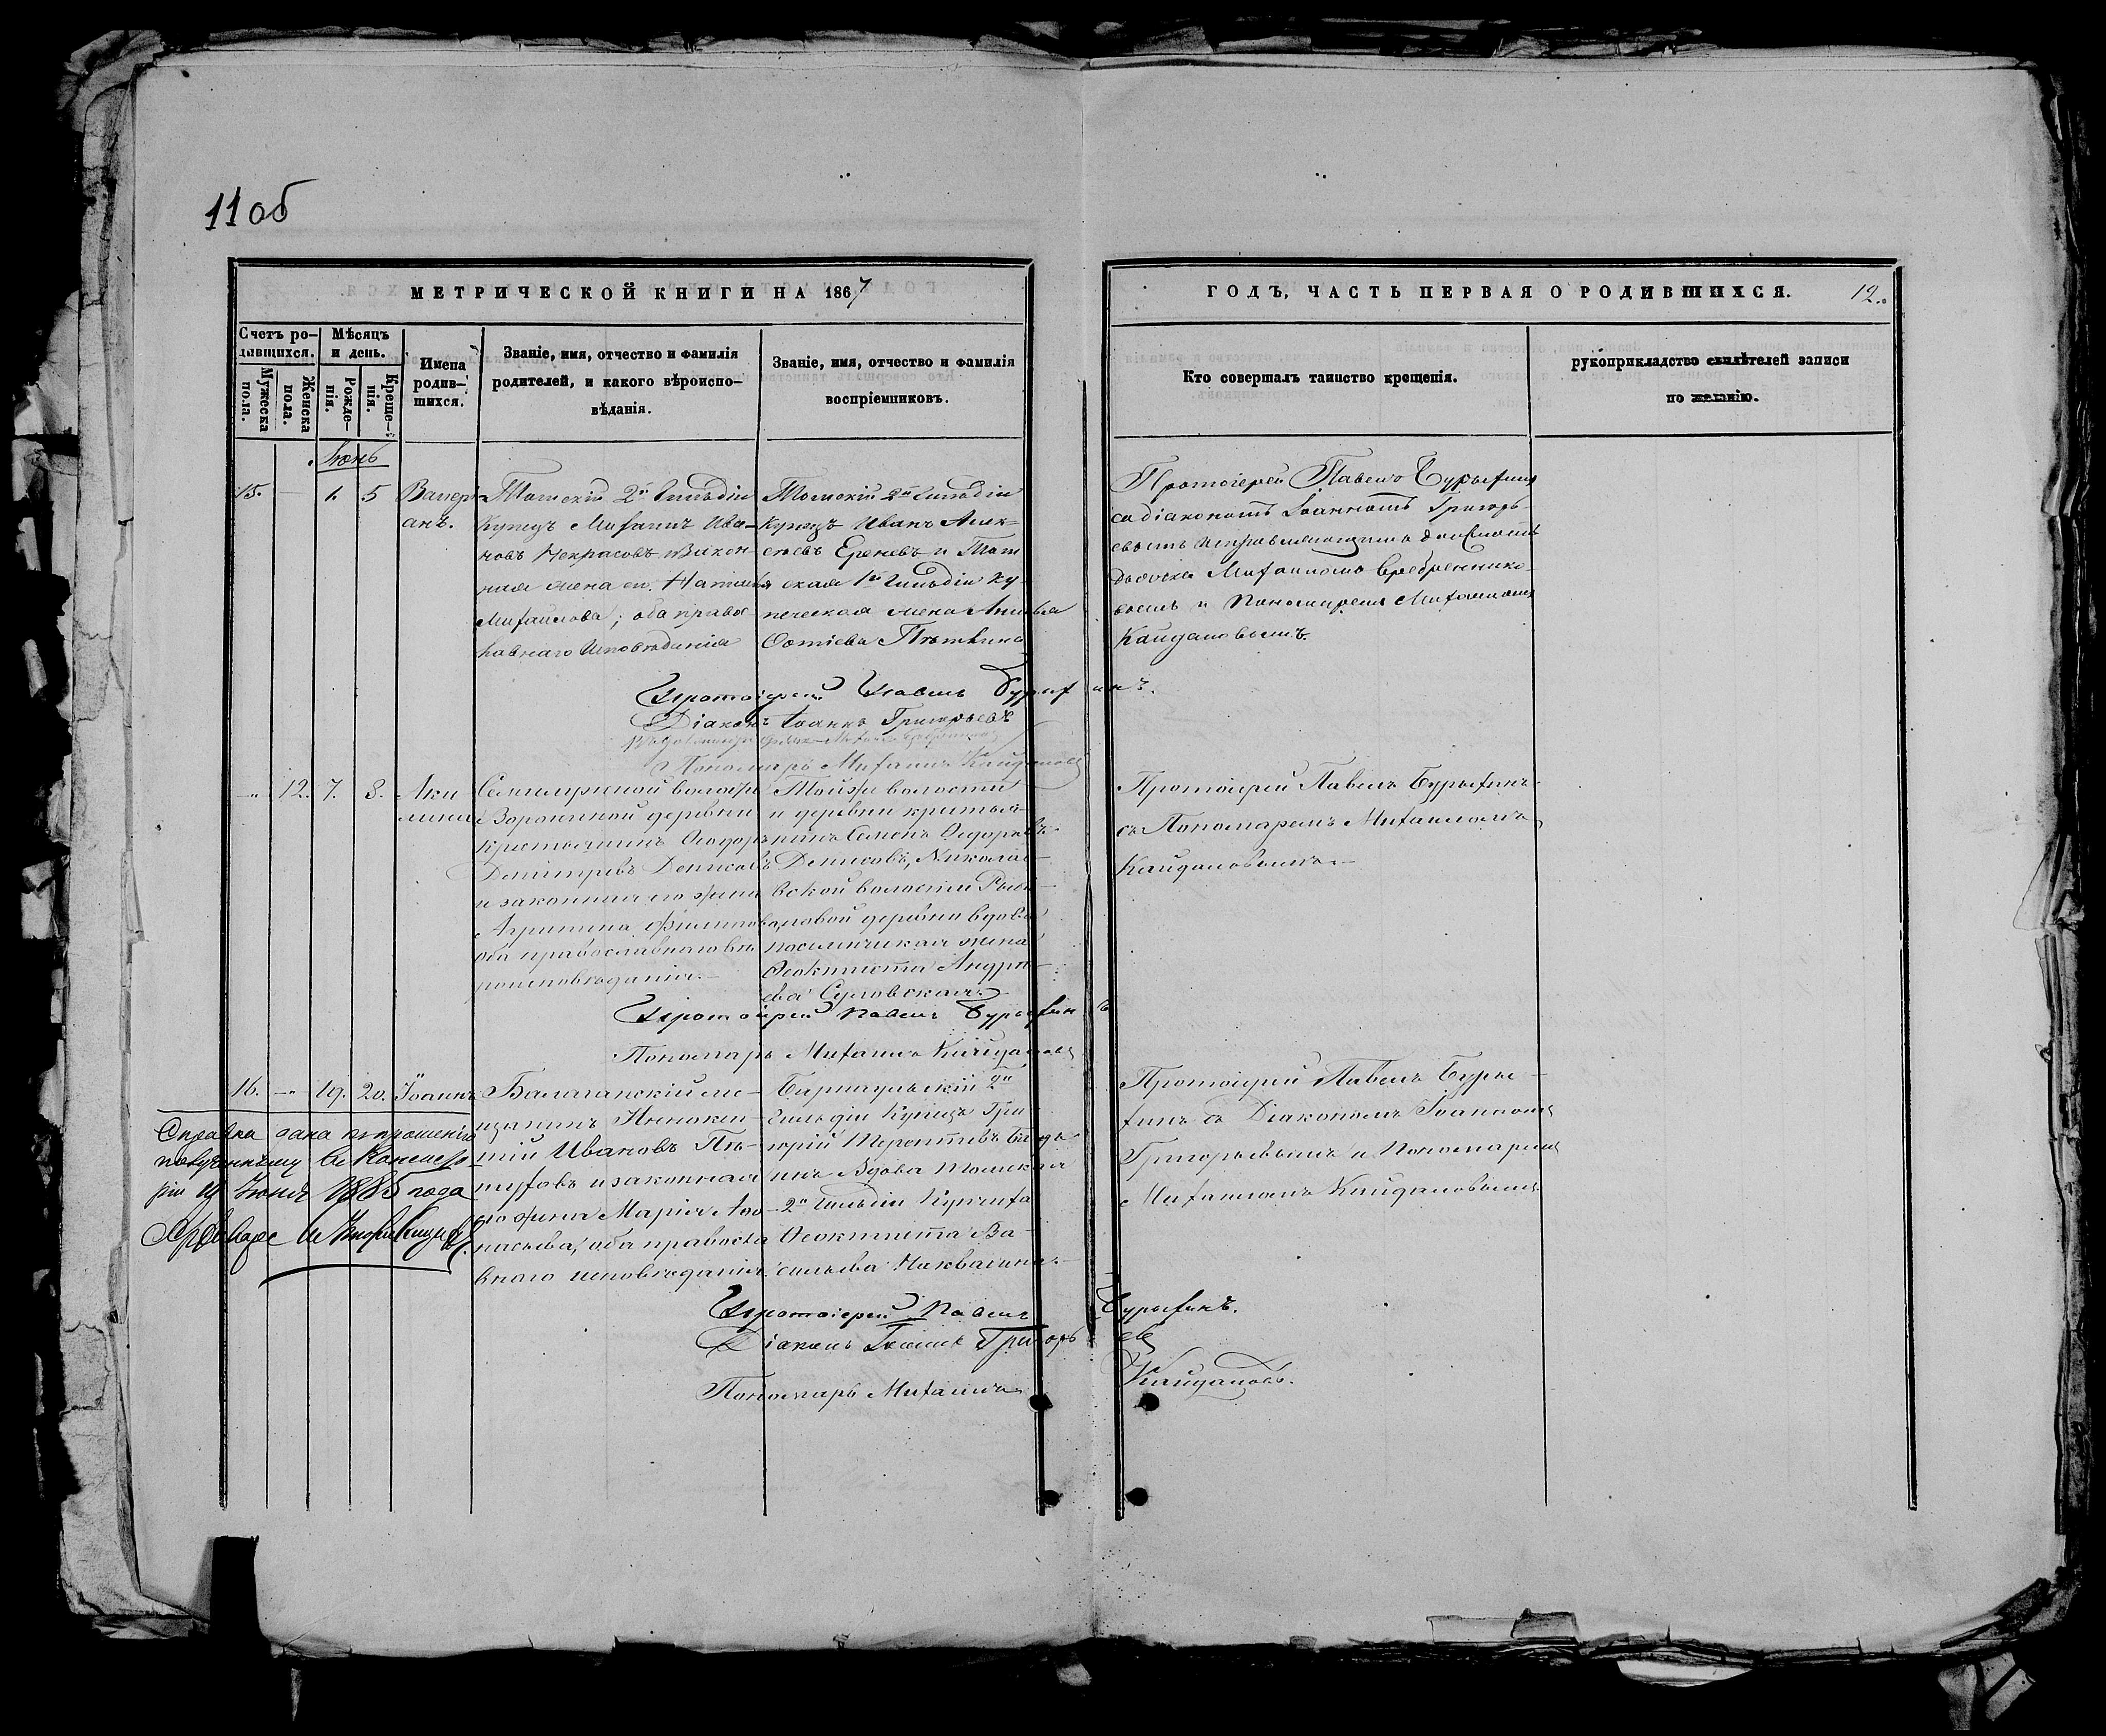 11 об
МЕТРИЧЕСКОЙ КНИГИ НА 1867
ГОДЪ, ЧАСТЬ ПЕРВАЯ О РОДИВШИХСЯ.
12.
Счетъ ро-
дившихся.
Мужеска
пола.
Женска
пола.
Мѣсяцъ
и день.
Рожде-
нія.
Креще-
нія.
Имена
родив-
шихся.
Званіе, имя, отчество и фамилія
родителей, и какого вѣроиспо-
вѣданія.
Званіе, имя, отчество и фамилія
воспріемниковъ.
Кто совершалъ таинство крещенія.
рукоприкладство свидѣтелей записи
по желанію.
Іюнь
15.
1.
5
Валері-
анъ.
Томскій 2й Гильдіи
Купецъ Михаилъ Ива-
новъ Некрасовъ и Закон-
ная жена его Наталья
Михайлова; оба правос-
лавнаго Исповѣданія
Томскій 2й Гильдіи
Купецъ Иванъ Алек-
сѣевъ Ереневъ и Том
ская 1й Гильдіи Ку-
печеская жена
Протоіерей Павелъ Бурыхинъ
со діакономъ Іоанномъ Григорь-
евымъ Исправляющимъ должность
Дьячка Михаиломъ Серебреннико-
вымъ и Пономаремъ Михаиломъ
Кайдаловымъ.
Протоіерей Павелъ Бурыхинъ.
Діаконъ Іоаннъ Григорьевъ
Пономарь Михаилъ Кайдаловъ
12.
7.
8.
Аки
лина
Семилужной волости
Ворониной деревни
Крестьянинъ Ѳеодоръ
Димитріевъ Денисовъ
и законная его жена
Агрипина Филипова,
оба православнаго вѣ
роисповѣданія.
Той же волости
и деревни крестья-
нинъ Семенъ Ѳедоровъ
Денисовъ, Николаев-
ской волости
деревни вдова
поселенческая жена
Ѳеоктиста Андре-
ева
Протоіерей Павелъ Бурыхинъ
съ Пономаремъ Михаиломъ
Кайдаловымъ.
Протоіерей Павелъ Бурыхинъ
Пономарь Михаилъ Кайдаловъ
16.
19.
20.
Іоаннъ
Балаганскій мѣ-
щанинъ Иннокен-
тій Ивановъ
и законная
его жена Марія Аѳа-
насьева, оба правосла
внаго исповѣданія.
Барнаульскій 2й
Гильдіи Купецъ Гри-
горій Терентьевъ
Вдова Томская
2й Гильдіи Купчиха
Ѳеоктиста Ва-
сильева
Протоіерей Павелъ Буры-
хинъ съ Діакономъ Іоанномъ
Григорьевымъ и Пономаремъ
Михаиломъ Кайдаловымъ
Справка дана по прошенію
полученному въ Консисто
ріи Іюня 1885 года
Протоіерей Павелъ Бурыхинъ.
Діаконъ Іоаннъ Григорьевъ
Пономарь Михаилъ Кайдаловъ.